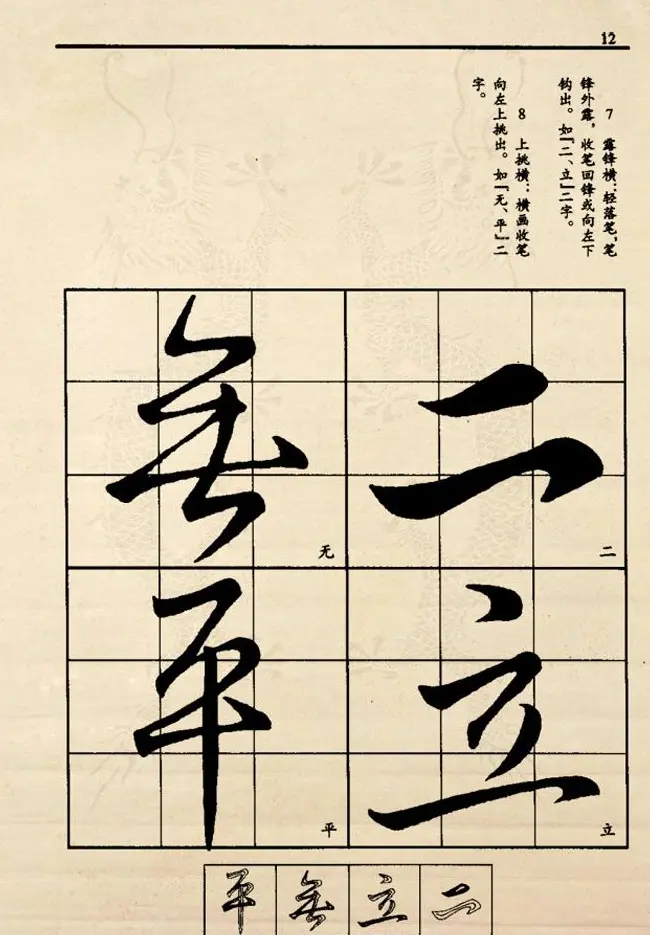 12
7 露锋横:轻落笔,笔
锋外露,收笔回锋或向左下
钩出。如『二、立』二字。
8 上挑横:横画收笔
向左上挑出。如『无、平』二
字。
二
二
立
立
無
无
平
平
二
立
無
平